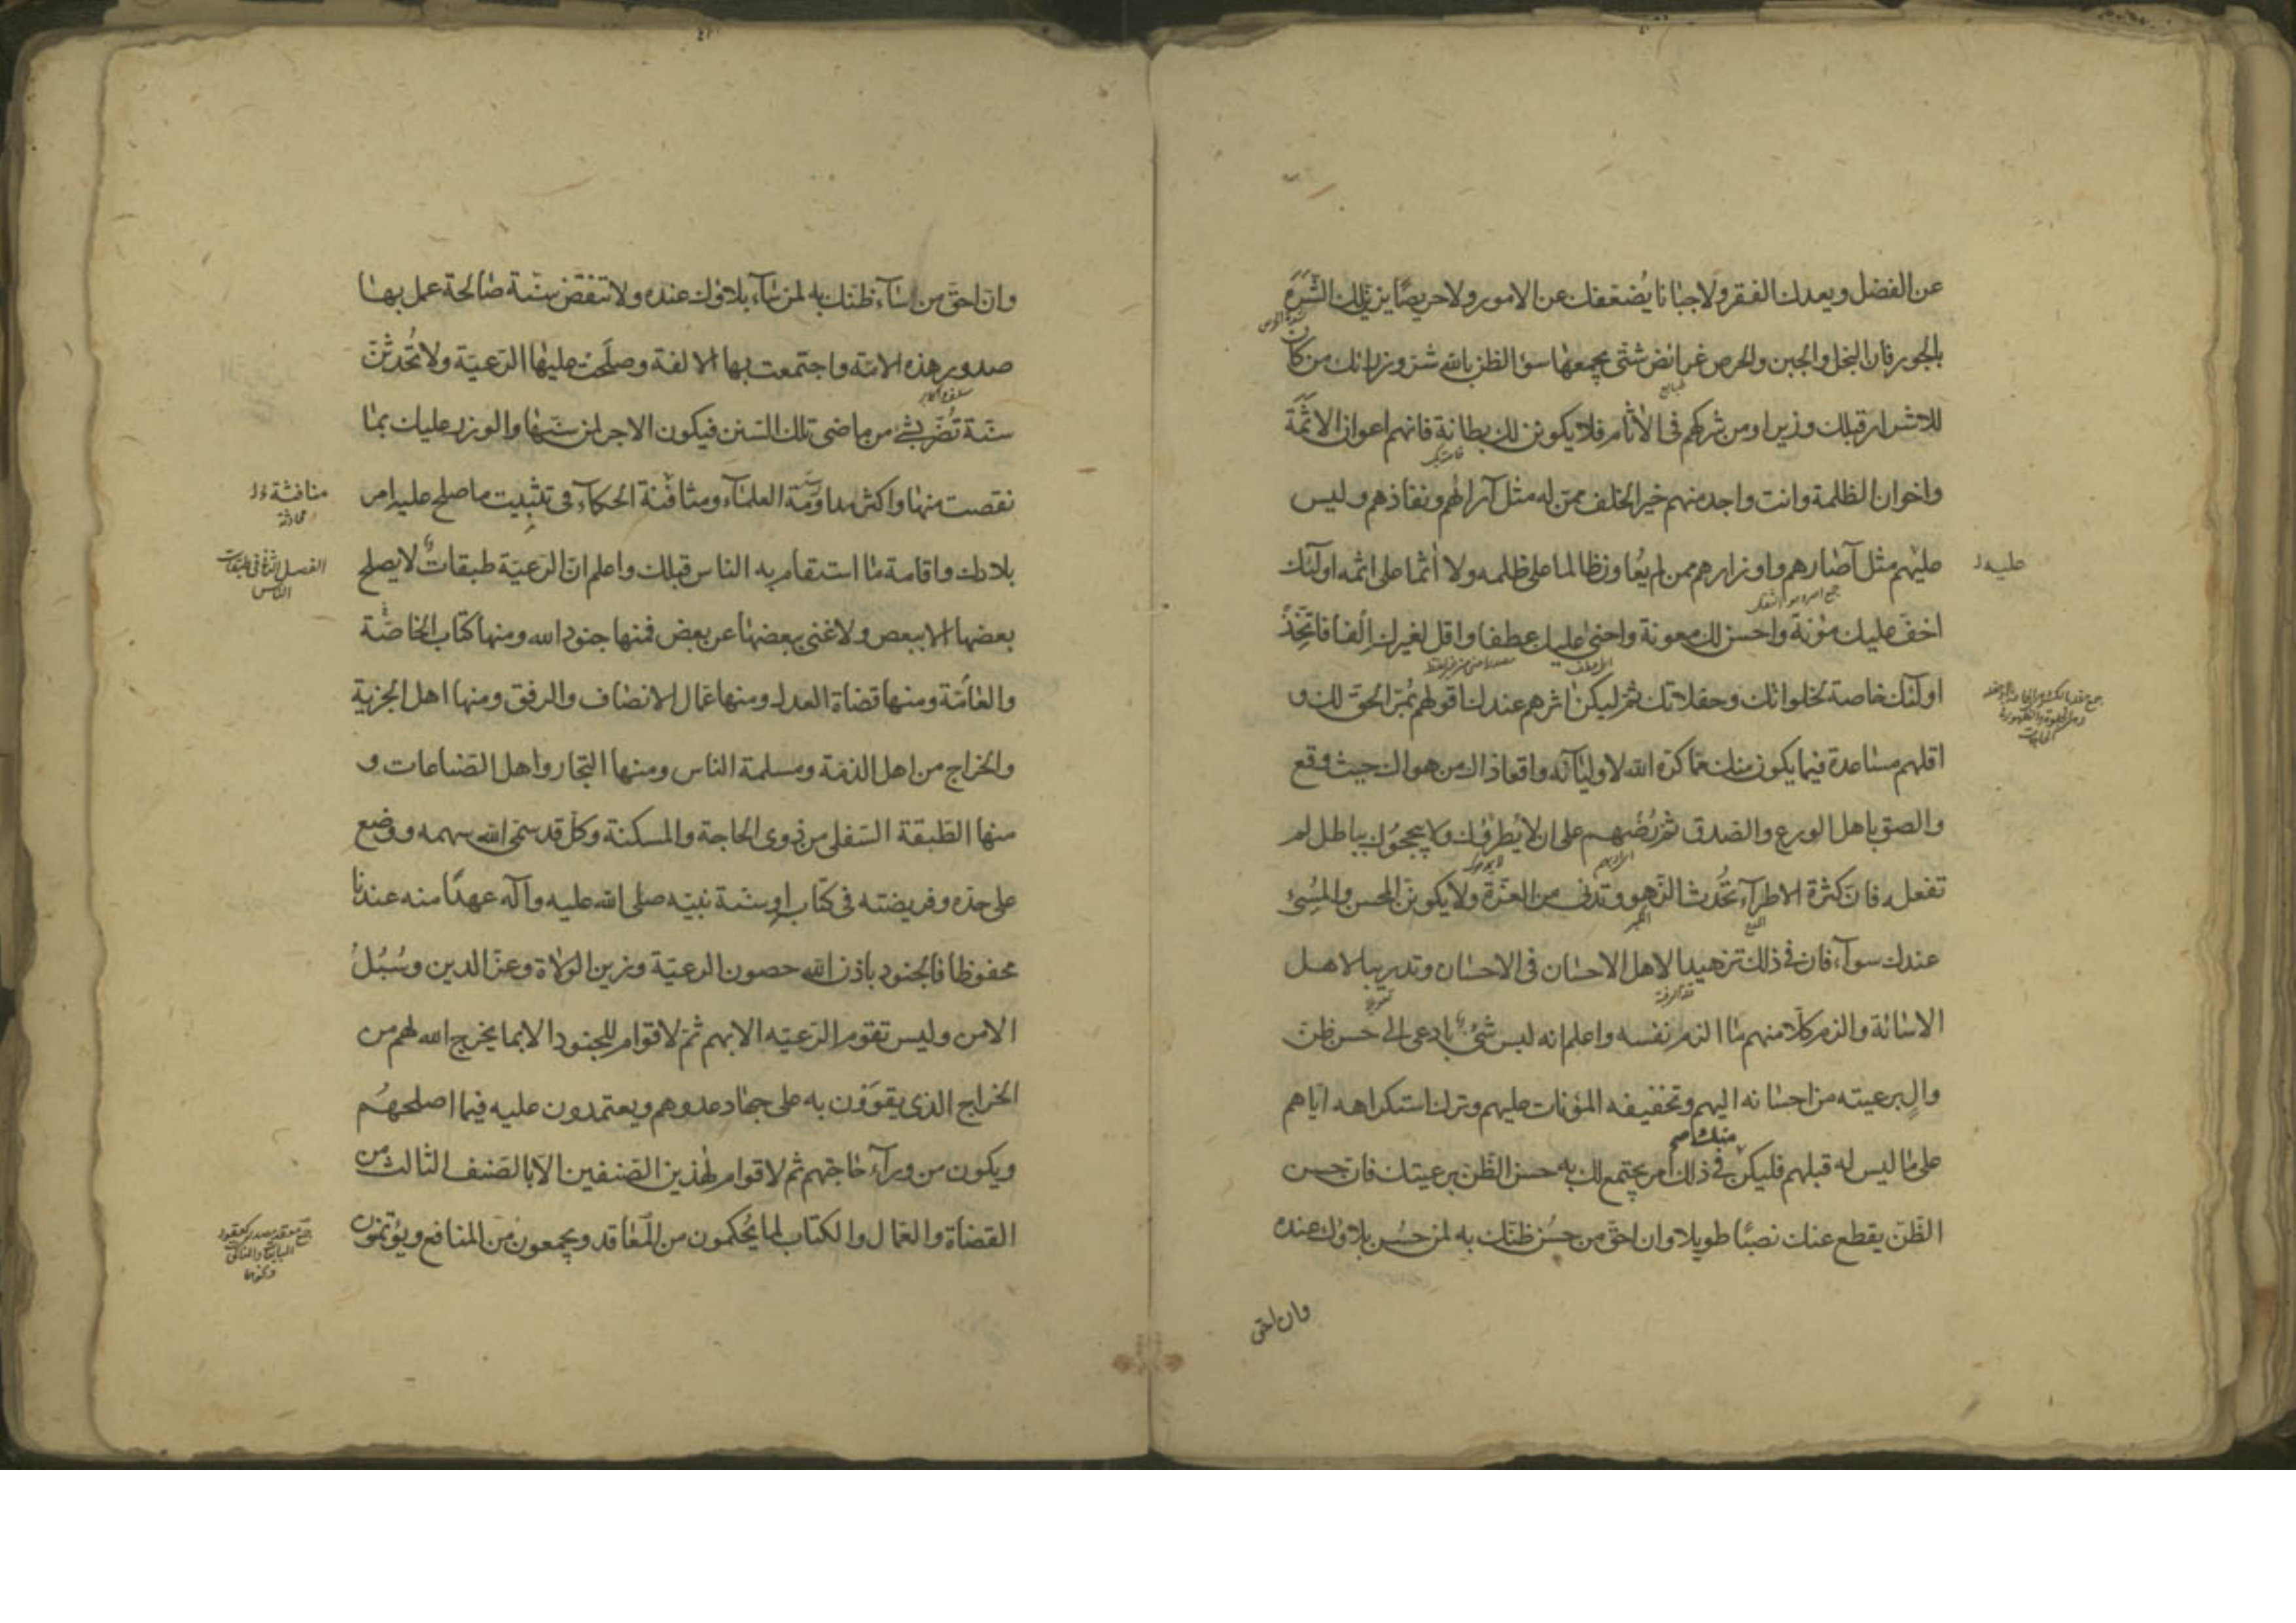 عن الفضل ويعدك الفقر ولا جبانا يُضعفك عن الامور ولا حريصًا يزين لك الشَّرَه
بالجور فان البخل والجبن والحرص غرائض شتّى يجمعها سوء الظن بالله شر وزرائك من كان
للاشرار قبلك وزيرا ومن شركهم في الاثام فلا يكونن لك بطانة فانهم اعوان الاثَمَة
واخوان الظلمة وانت واجد منهم خير الخلف ممن له مثل آرائهم ونفاذهم وليس
عليهم مثل آصارهم واوزارهم ممن لم يعاون ظالما على ظلمه ولا آثما على اثمه اولئك
عليه
اخف عليك مؤنة واحسن لك معونة واحنى عليك عطفا واقل لغيرك إلفا فاتّخذ
اولئك خاصة لخلواتك وحفلاتك ثم ليكن اثرهم عندك اقولهم بمُرّ الحق لك و
اقلهم مساعدة فيما يكون منك مما كره الله لاوليائه واقعا ذلك من هواك حيث وقع
والصق باهل الورع والصدق ثم رُضْهم على ان لا يُطروك ولا يبجحوك بباطل لم
تفعله فان كثرة الاطراء تُحدث الزهو وتدنى من العزّة ولا يكونن المحسن والمسئ
عندك سواء فان في ذلك تزهيدا لاهل الاحسان في الاحسان وتدريبا لاهل
الاساءة والزم كلّا منهم ما الزم نفسه واعلم انه ليس شئ بادعى الى حسن ظن
والٍ برعيته من احسانه اليهم وتخفيفه المؤنات عليهم وترك استكراهه اياهم
منك صح
على ما ليس له قبلهم فليكن في ذلك امر يجتمع لك به حسن الظن برعيتك فان حسن
الظن يقطع عنك نصبًا طويلا وان احق من حسُن ظنك به لمن حسُن بلاؤك عنده
وان احق
وان احق من ساء ظنك به لمن ساء بلاؤك عنده ولا تنقض سنّة صالحة عمل بها
صدور هذه الامّة واجتمعت بها الالفة وصلَحَت عليها الرعيّة ولا تُحدثنّ
سنّة تضرّ بشئ من ماضى تلك السنن فيكون الاجر لمن سنّها والوزر عليك بما
نقصت منها واكثر مداومة العلماء ومثافنة الحكماء في تثبيت ما صلح عليه امر
منافثة
بلادك واقامة ما استقام به الناس قبلك واعلم ان الرعيّة طبقات لا يصلح
الفصل الثانى في طبقات
الناس
بعضها الا ببعض ولا غنى ببعضها عن بعض فمنها جنود الله ومنها كتّاب الخاصّة
والعامّة ومنها قضاة العدل ومنها عمّال الانصاف والرفق ومنها اهل الجزية
والخراج من اهل الذمّة ومسلمة الناس ومنها التجار واهل الصناعات و
منها الطبقة السفلى من ذوى الحاجة والمسكنة وكلّ قد سمى الله سهمه ووضع
على حدّه وفريضته في كتابه او سنّة نبيّه صلى الله عليه وآله عهدًا منه عندنا
محفوظا فالجنود باذن الله حصون الرعيّة وزين الولاة وعزّ الدين وسُبُل
الامن وليس تقوم الرعيّه الا بهم ثم لا قوام للجنود الا بما يخرج الله لهم من
الخراج الذى يقوَوْن به على جهاد عدوهم ويعتمدون عليه فيما اصلحهُم
ويكون من وراء حاجتهم ثم لا قوام لهذين الصنفين الّا بالصنف الثالث من
القضاة والعمّال والكتاب لما يُحكمون من المَعاقد ويجمعون من المنافع ويؤتمنون